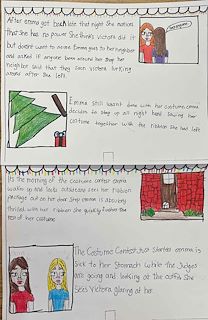 After emma got back late that night she notices
That She has no power She thinks victoria did it
but doesnt want to assume Emma goes to her neighbor
and asked if anyone been around her shop her
neighbor said that they seen victoria lurking
around after she left.
Emma still wasnt done with her costume emma
decides to stay up all night hand sewing her
costume together with the ribbon she had left
Its the morning of the costume contest emma
wakes up and looks outside sees her ribbon
package out on her door step emma is
thrilled with her ribbon She quickly finishes the
rest of her costume
The Costume Contest Just started emma is
sick to her Stomach While the Judges
are going and looking at the outfits She
Sees Victoria glaring at her.